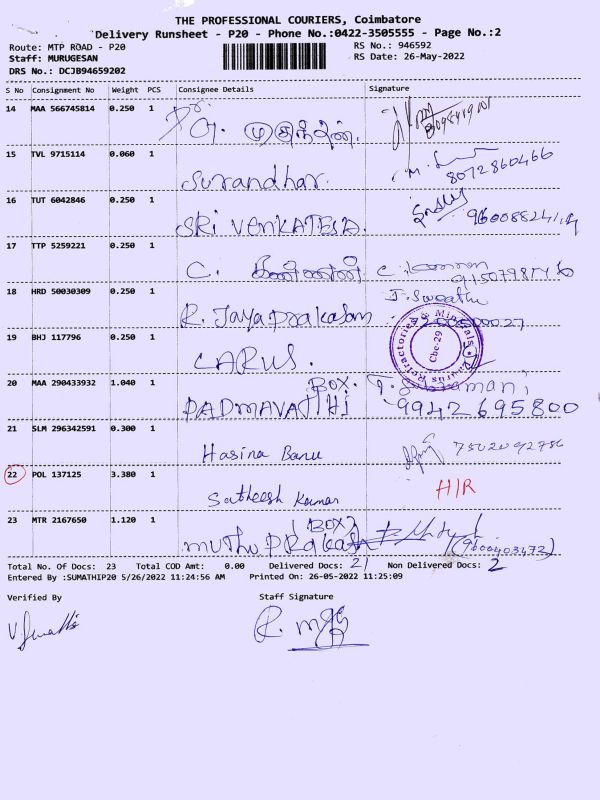 THE PROFESSIONAL COURIERS, Coimbatore
Delivery Runsheet - P20 - Phone No.:0422-3505555 - Page No.:2
Route: MTP ROAD - P20 RS No.: 946592
Staff: MURUGESAN RS Date: 26-May-2022
DRS No.: DCJB94659202
S No Consignment No Weight PCS Consignee Details Signature
14 MAA 566745814 0.250 1
15 TVL 9715114 0.060 1 Surandhar. 8072860466
16 TUT 6042846 0.250 1 SRI VENKATESA.
17 TTP 5259221 0.250 1 C.
18 HRD 50030309 0.250 1 R. Jayaprakasam
19 BHJ 117796 0.250 1 CARUS. Taurus Refractories & Minerals Cbe-29
20 MAA 290433932 1.040 1 BOX.
PADMAVATHI 9942695800
21 SLM 296342591 0.300 1 Hasina Banu 7502092786
22 POL 137125 3.380 1 Satheesh Kumar H/R
23 MTR 2167650 1.120 1 (BOX)
muthu prakash (9600403472)
Total No. Of Docs: 23 Total COD Amt: 0.00 Delivered Docs: 21 Non Delivered Docs: 2
Entered By :SUMATHIP20 5/26/2022 11:24:56 AM Printed On: 26-05-2022 11:25:09
Verified By Staff Signature